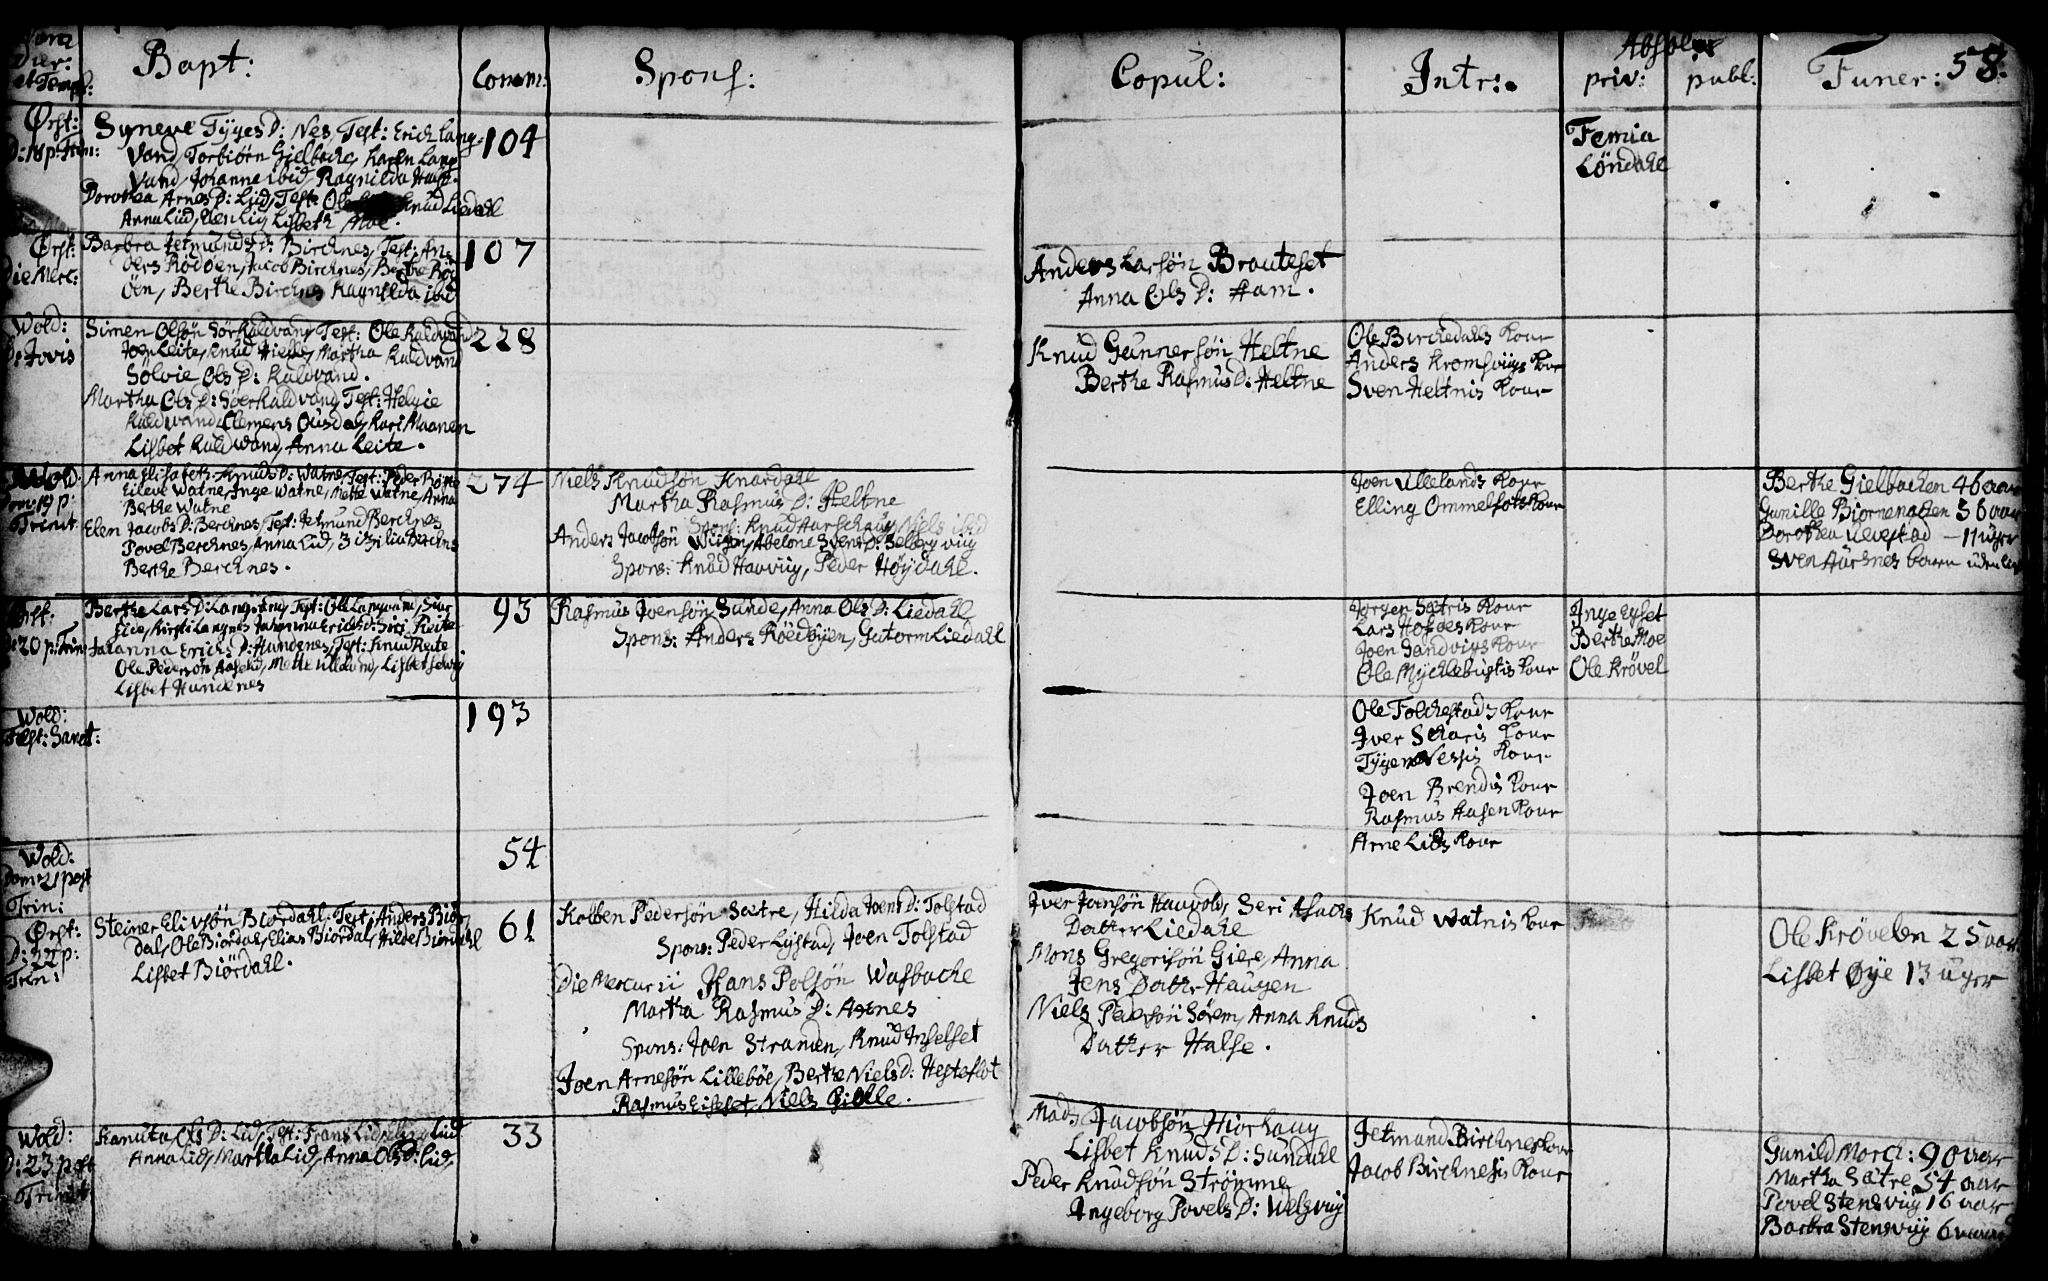 Dier:
et Temp:
Bapt:
Comm:
Spons:
Copul:
Intr:
Absolut
priv:
publ:
Funer:
58.
Ørst:
D: 18 p: Trin:
Syneve Tÿges D: Nes, Test: Erich Lang-
Vand, Torbiørn Gielbache, Karen Lang
Vand, Johanne ibid, Ragnilda
Dorothea Arnes D: Lid, Test: Ole Knud Liedahl
Anna Lid, Elen Lid, Lisbeth Moe.
104
Femia
Løndahl
Ørst:
Die Merc:
Barbra Jetmunds D: Birchnes, Test: An-
ders Rødøen, Jacob Birchnes, Berthe Rød
øen, Berthe Birchnes Ragnilda ibid
107
Anders Larsøn Brauteset
Anna Ols D: Ham.
Wold:
D: Jovis
Simen Olsøn Sørkaldvand, Test: Ole Kaldvand
Joen Leite, Knud Hielle, Martha Kaldvand
Solvie Ols D: Kaldvand.
Martha Ols D: Søerkaldvand Test: Helgie
Kaldwand, Clemens Ousdal, Kari Maanen
Lisbet Kaldwand, Anna Leite.
228
Knud Gunnersøn Heltne
Berthe Rasmus D: Heltne
Ole Birchedals Kone
Anders Kromsviigs Kone
Sven Heltnis Kone
Wold:
Dom: 19 p:
Trinit
Anna Elisabeth Knuds D: Watne, Test: Peder Rønne
Eileve Watne, Inge Watne, Mette Watne, Anna
Berthe Watne
Elen Jacobs D: Berchnes, Test: Jetmund Berchnes
Povel Berchnes, Anna Lid, Zizilia Berchnes
Berthe Berchnes.
274
Niels Knudsøn Knardahl
Martha Rasmus D: Heltne
Spons: Knud Aarschaug, Niels ibid
Anders Jacobsøn Wiigen, Abelone Svens D: Selbervüg
Spons: Knud Hauvüg, Peder Høÿdahl.
Joen Ullelands Kone
Elling Ommelfots Kone
Berthe Gielbachen 46 aar
Gunille Biørnenakken 36 aar
Dorothea Ulvestad – 11 uger
Sven Aarsnes barn uden
Ørst:
D: 20 p: Trin:
Berthe Lars D: Langvand, Test: Ole Langvand, Siur
Eide, Kirsti Langnes Johanna Erichs D: Siri Reite
Johanna Erichs D: Hundenes, Test: Knud Reite
Ole Pedersøn Aaselid, Mette Ulldvand, Lisbet
Lisbet Hundenes
93
Rasmus Joensøn Sunde, Anna Ols D: Liedahl
Spons: Anders Röedöÿen, Gutorm Liedahl
Jørgen Sætris Kone
Lars Hofdes Kone
Joen Sandvigs Kone
Ole Mÿchlebustis Kone
Inge Eÿset
Berthe Moe
Ole Krøvel
Wold:
Fest: Sanct:
193
Ole Folchestads Kone
Iver Scharis Kone
Tÿge Nessis Kone
Joen Brendis Kone
Rasmus Aasen Kone
Wold:
Dom: 21 post
Trin:
54
Arne Lids Kone
Ørst:
D: 22 p:
Trin:
Steiner Elivsøn Biordahl, Test: Anders Biør
dal, Ole Biordal, Elias Biordal, Hilde Biordahl
Lisbet Biördahl.
61
Kolben Pedersøn Sætre, Hilda Joens D: Tolstad
Spons: Peder Lystad, Joen Tolstad
Die Mercurii Hans Polsøn Wasbache
Martha Rasmus D: Aarnes
Spons: Joen Stranden, Knud Inselset
Joen Arnesøn Lillebøe, Berthe Niels D: Hesteflot
Rasmus Eiseset, Niels Gielle.
Iver Joensøn Hauvold, Seri Asachs
Datter Liedahl
Mons Gregorisøn Giere, Anna
Jens Datter Haugen
Niels Pedersøn Sørem, Anna Knuds
Datter Halse.
Knud Watnis Kone
Ole Krøvelen 25 aar
Lisbet Øye 13 uger
Wold:
D: 23 post
Trinit
Kanuta Ols D: Lid, Test: Frans Lid, Lid
Anna Lid, Martha Lid, Anna Ols D: Lid,
33
Mads Jacobsøn Hiorhaug
Lisbet Knuds D: Sundahl
Peder Knudsøn Strømme
Ingeborg Povels D: Welsvüg
Jetmund Birchnes Kone
Jacob Birchnesis Kone
Gunild Morch: 90 aar
Martha Sætre 54 aar
Povel Stensvüg 16 aar
Barbra Stensvüg 6